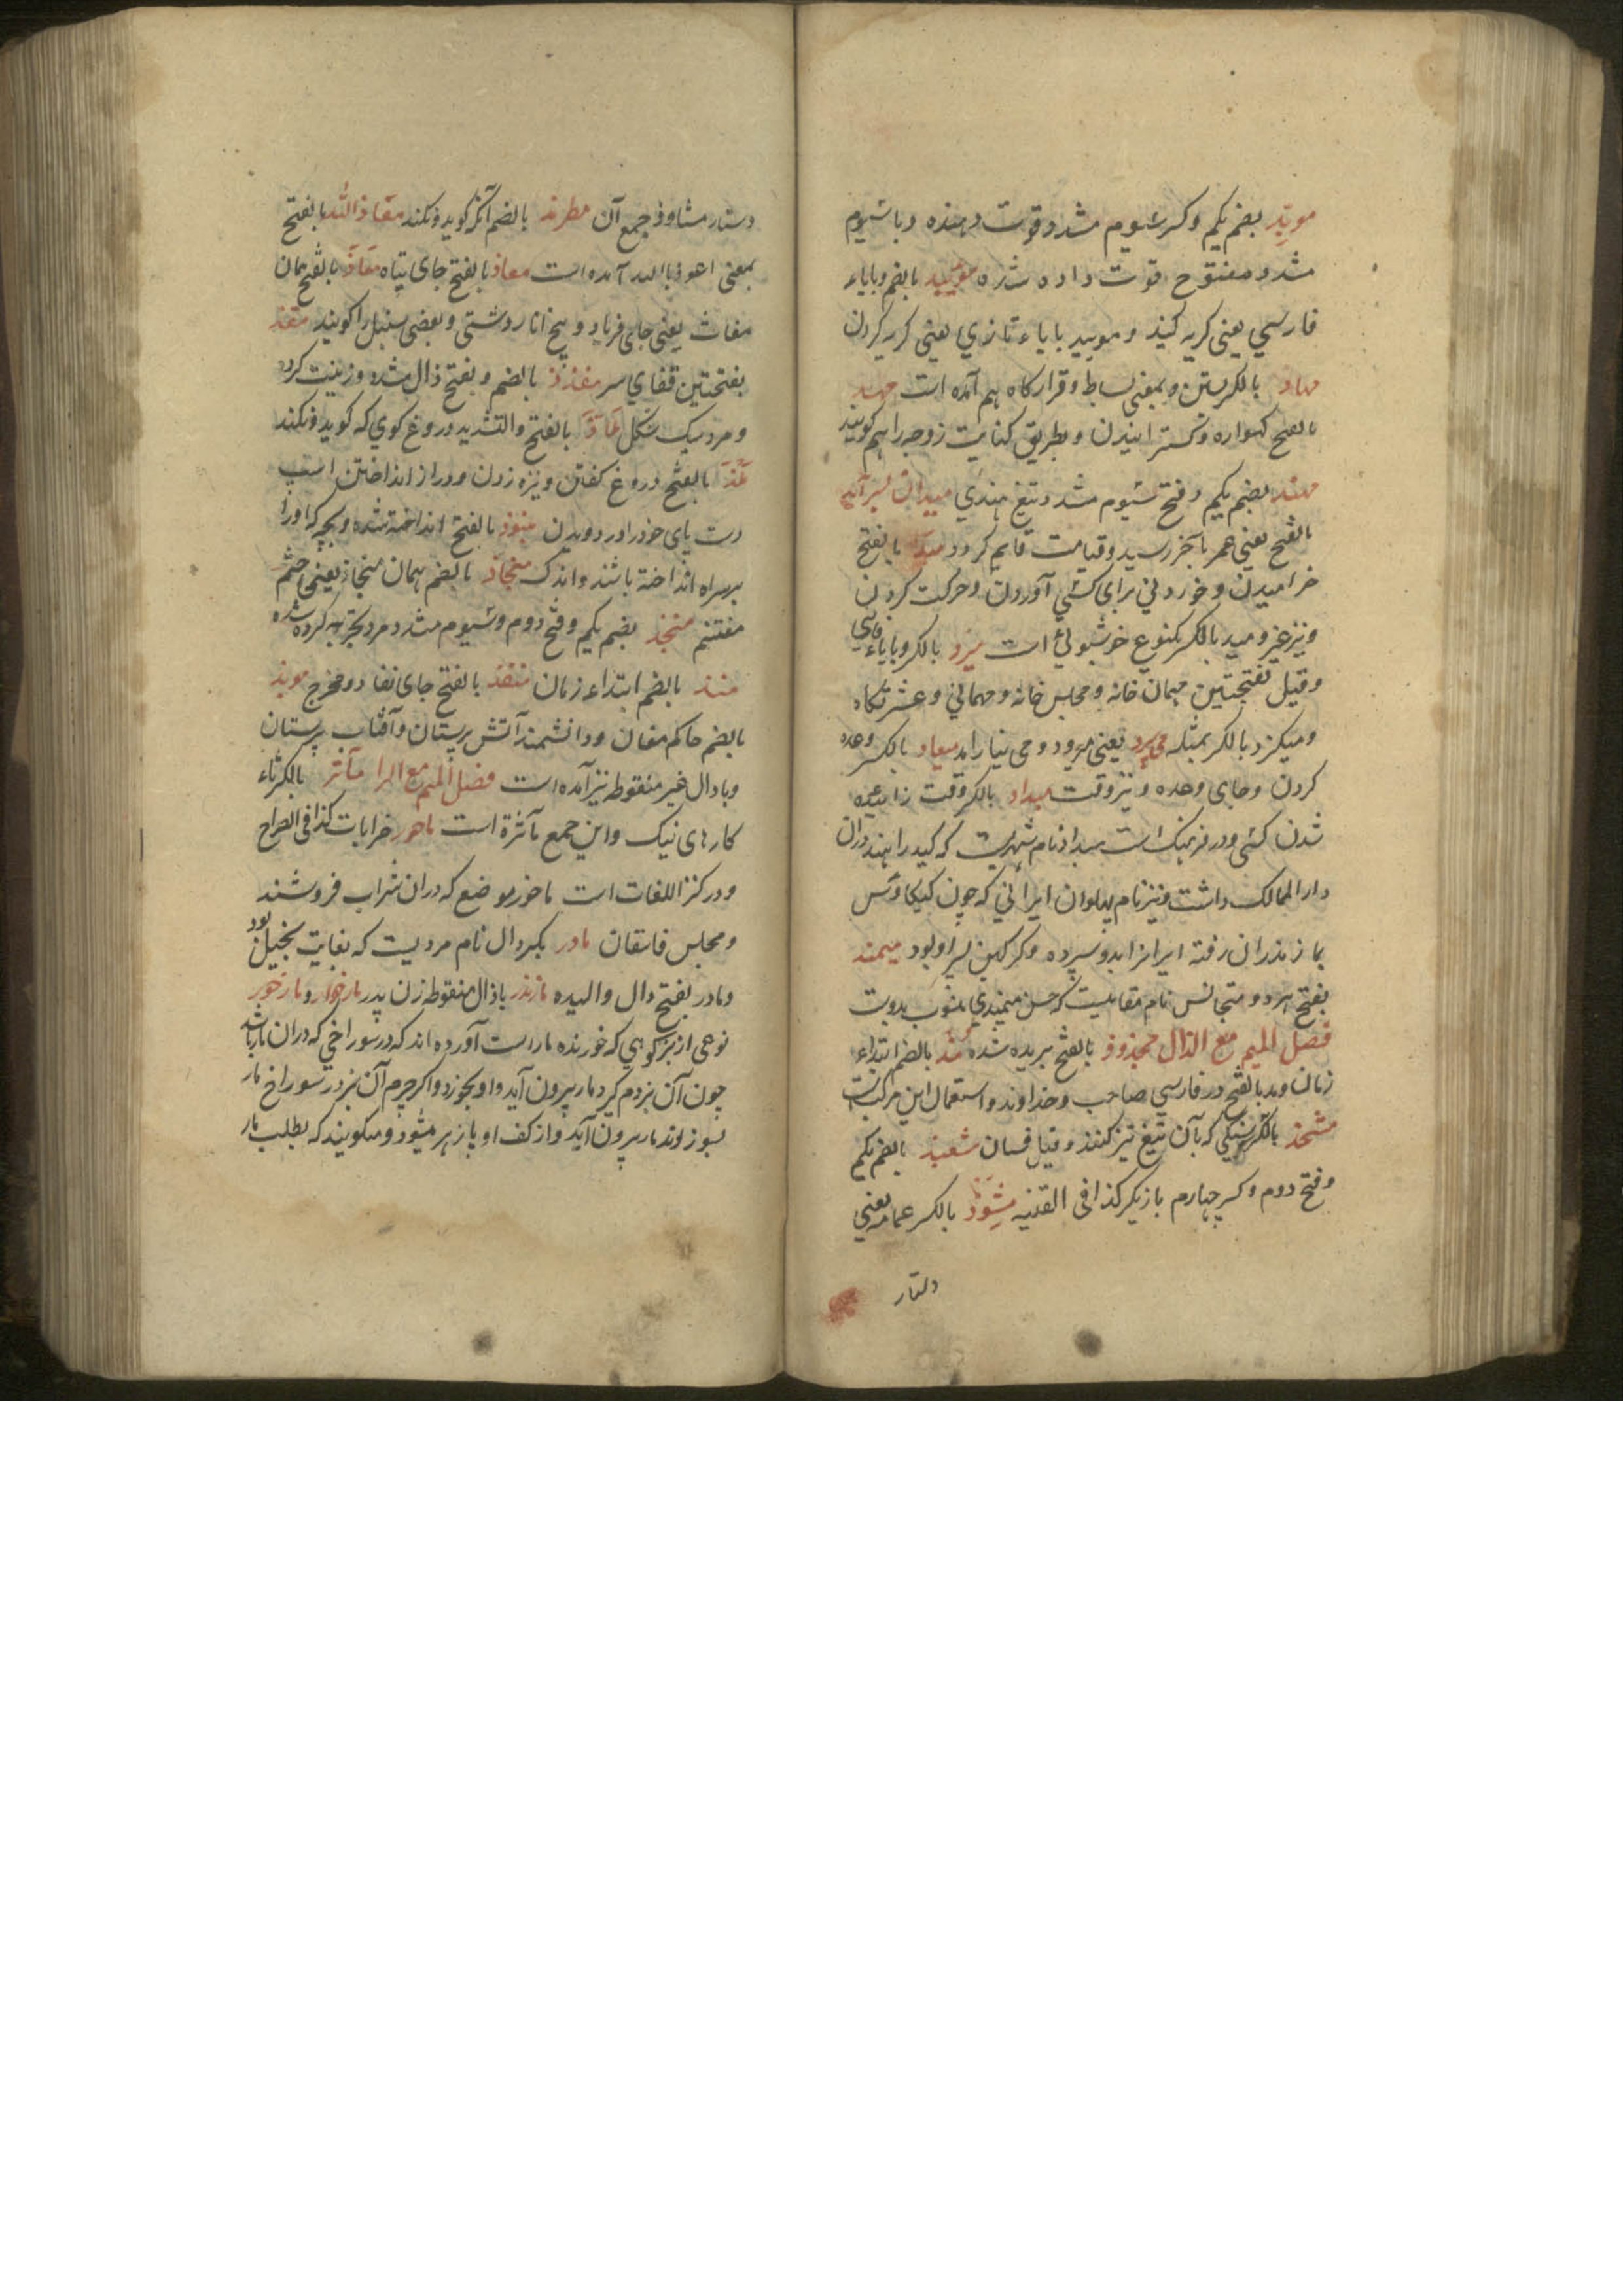 موید بضم یکم وکسر سیوم مشدد قوت دهنده وبا سیوم
مشدد مفتوح قوت داده شده مویید بالضم وبایاء
فارسی یعنی کریه کنید و مویید بایاء تازی یعنی کریه کردن
مهاد بالکسر بستن وبمعنی بساط وقرارکاه هم آمده است مهد
بالفتح کهواره وکسترانیدن وبطریق کنایت زوجه را هم کویند
مهند بضم یکم وفتح سیوم مشدد تیغ هندی میدان بسر آمد
بالفتح یعنی عمر بآخر رسید وقیامت قایم کردد مید بالفتح
خرامیدن وخوردنی برای کسی آوردن وحرکت کردن
ونیز غیر ومید بالکسر یکنوع خوشبوئی است میزد بالکسر وبایاء فارسی
وقیل بفتحتین مهمان خانه ومجلس خانه ومهمانی وعشرتکاه
ومیکزد بالکسر بمثله می برد یعنی میرود ومی نیاراند میعاد بالکسر وعده
کردن وجای وعده ونیز وقت میداد بالکسر وقت زائیده
شدن کسی ودر فرهنک است میداد نام شهریست که کید را هند دران
دار الممالک داشت ونیز نام پهلوان ایرانی که چون کیکاوس
بمازندران رفته ایران را بدو سپرده وکرکین پسر او بود میمند
بفتح هر دو متجانس نام مقامیست که حسن میمندی منسوب بدوست
فصل المیم مع الذال مجذوذ بالفتح بریده شده مذ بالضم ابتداء
زمان ومد بالفتح در فارسی صاحب وخداوند واستعمال این مرکب است
مشحذ بالکسر سنکی که بآن تیغ تیز کنند وقیل فسان مشعبذ بالضم یکم
وفتح دوم وکسر چهارم بازیکر کذا فی القنیه مشوذ بالکسر عمامه یعنی
دستار
دستار مشاوذ جمع آن مطرمذ بالضم آنکه کوید ونکند معاذ الله بالفتح
بمعنی اعوذ بالله آمده است معاذ بالفتح جای پناه مغاذ بالفتح همان
مغاث یعنی جای فریاد وبیخ انار دشتی وبعضی سنبل را کویند مقذ
بفتحتین قفای سر مقذذ بالضم وبفتح ذال مشدد زینت کرده
ومرد سبک شکل ملاذ بالفتح والتشدید دروغ کوی که کوید ونکند
ملذ بالفتح دروغ کفتن ونیزه زدن ودراز انداختن اسب
دست پای خود را در دویدن منبوذ بالفتح انداخته شده وبچه که او را
بر سر راه انداخته باشند واندک منجاذ بالضم همان منجاز یعنی خشم
مغتنم منجذ بضم یکم وفتح دوم وسیوم مشدد مرد تجربه کرده شده
منذ بالضم ابتداء زمان منفذ بالفتح جای نفاذ ومخرج موبذ
بالضم حاکم مغان ودانشمند آتش پرستان وآفتاب پرستان
وبا دال غیر منقوطه نیز آمده است فصل المیم مع الرا مآثر بالکسر ثاء
کارهای نیک واین جمع مآثرة است ماخور خرابات کذا فی الصراح
ودر کنز اللغات است ماخور موضع که دران شراب فروشند
ومجلس فاسقان مادر بکسر دال نام مردیست که بغایت بخیل بود
ومادر بفتح دال والیده ماذندر باذال منقوطه زن پدر مارخوار ومارخور
نوعی از بز کوهی که خورنده مار است آورده اند که در سوراخی که دران مار باشد
چون آن بز دم کیرد مار بیرون آید واو بخورد واکر چرم آن بز در سوراخ مار
بسوزند مار بیرون آید واز کف او پازهر میشود ومیکویند که بطلب مار